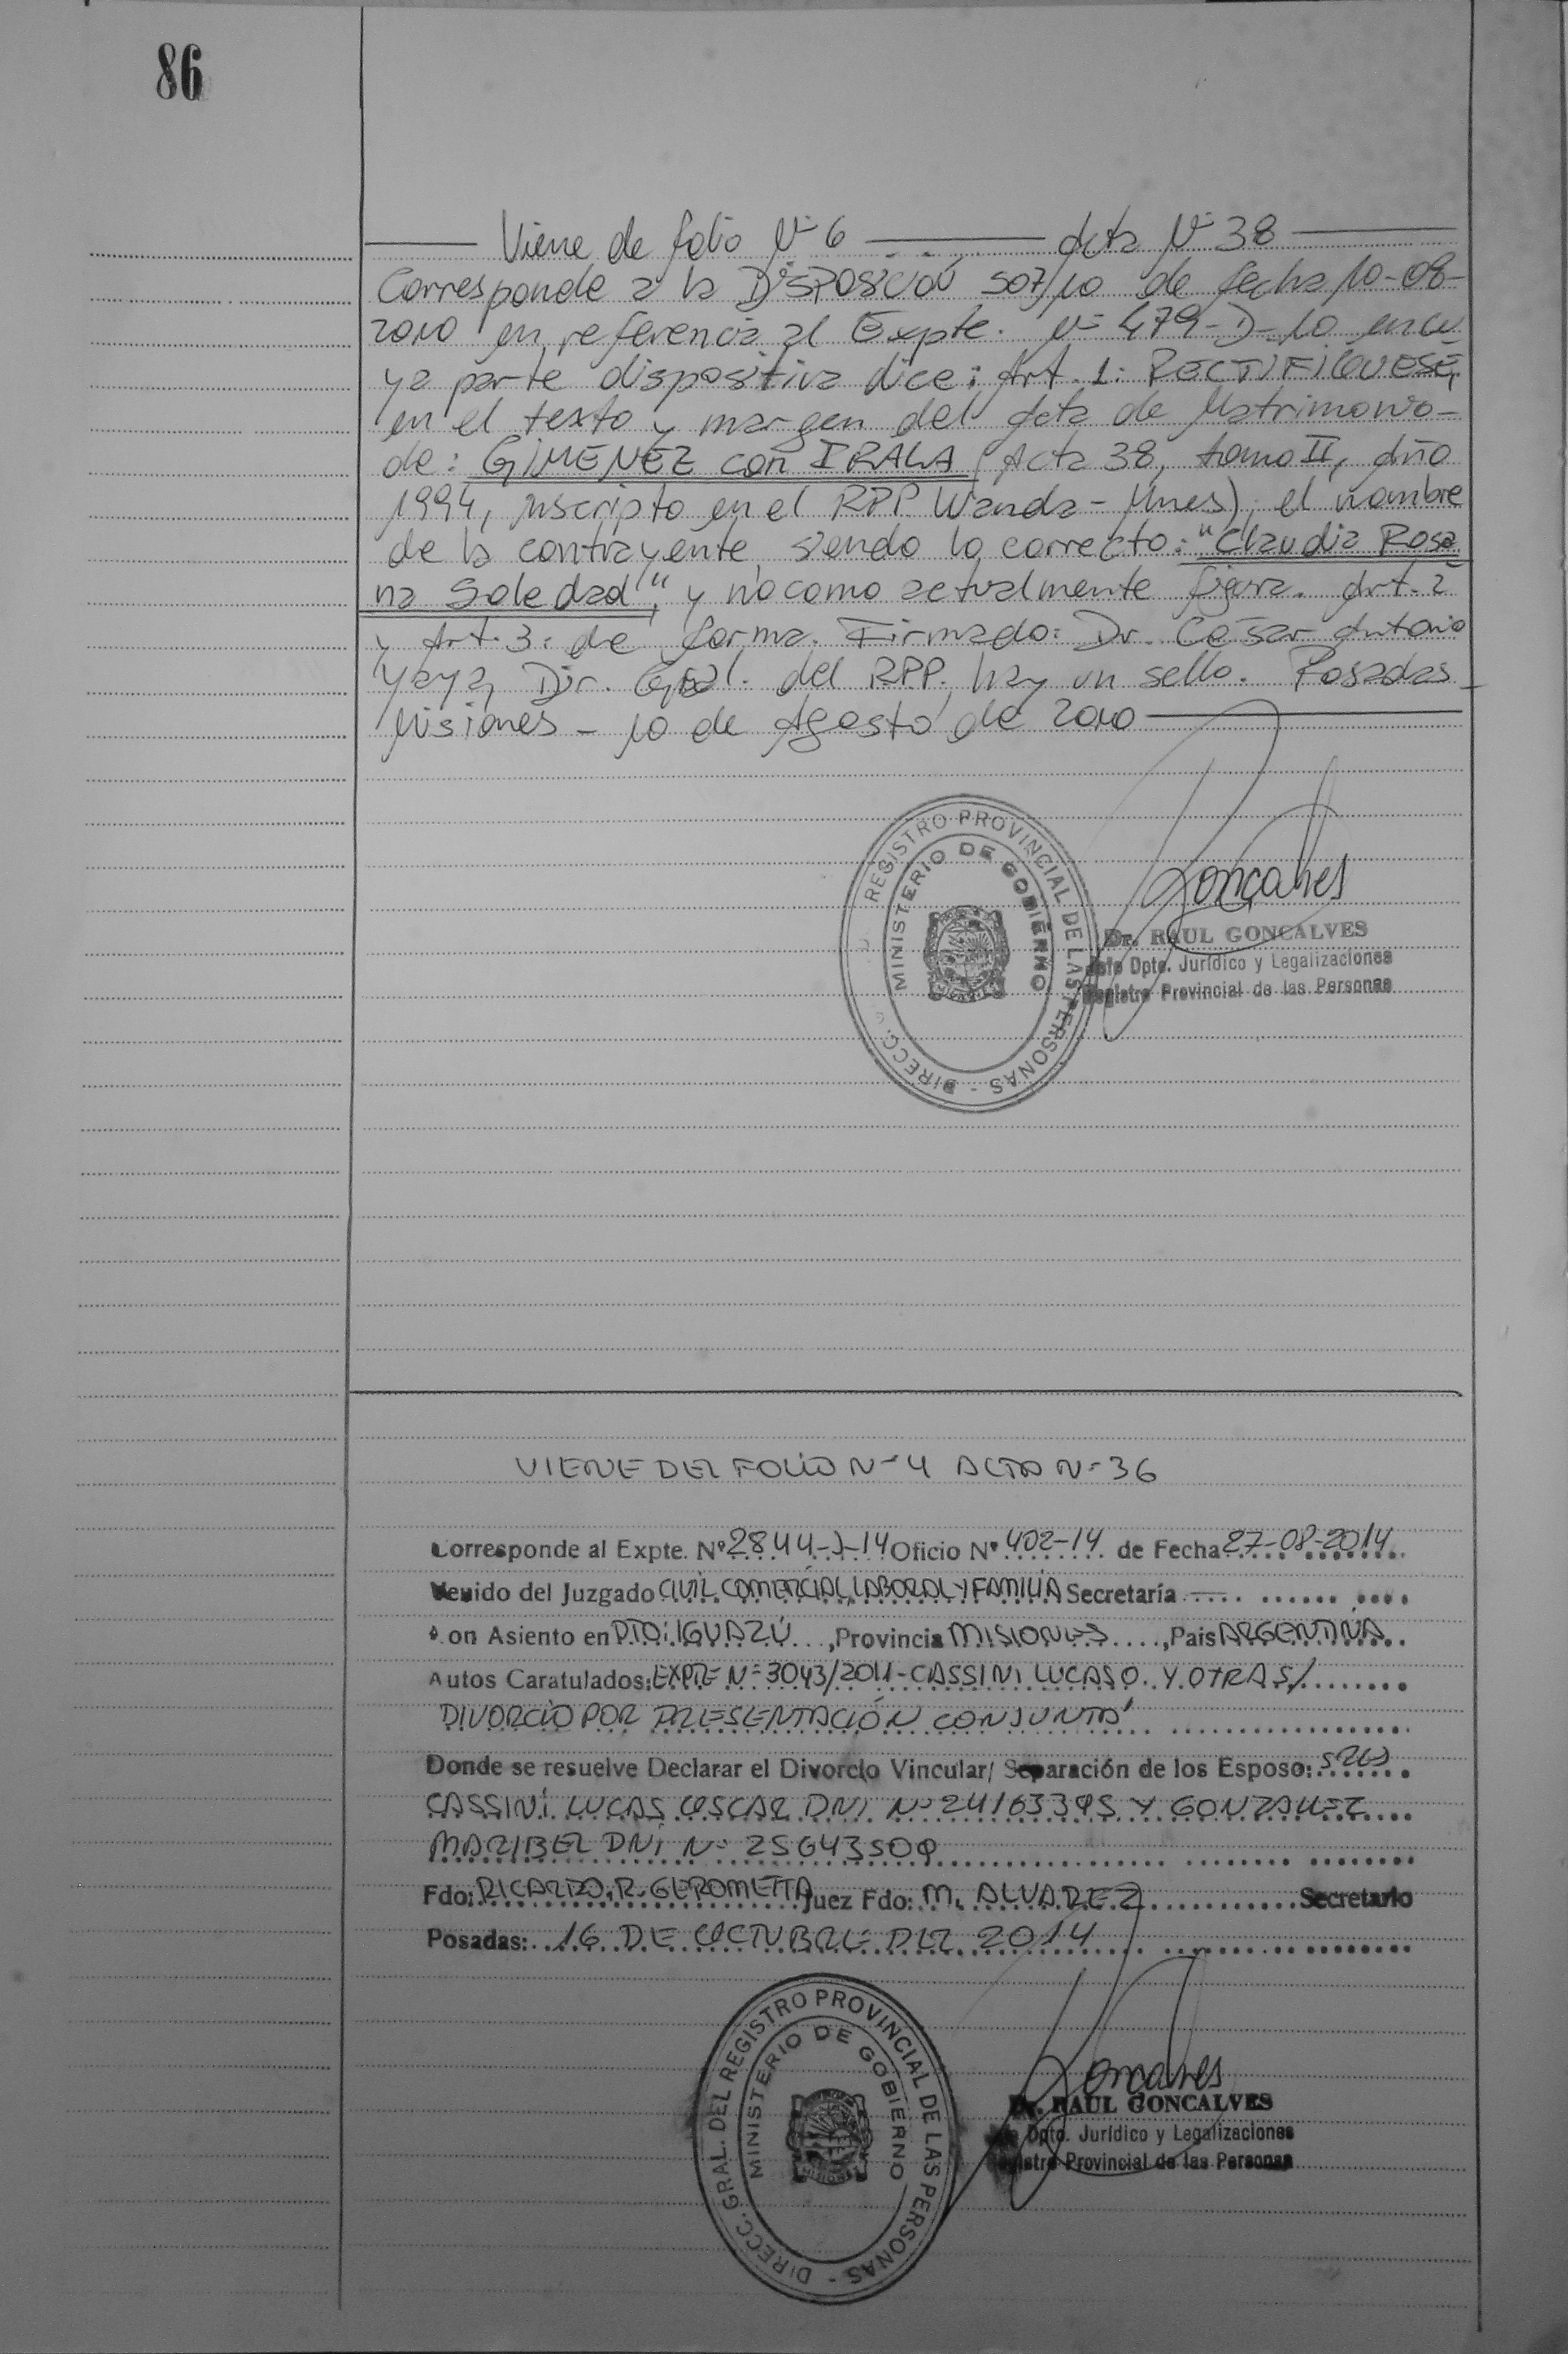 86
Viene de folio Nº 6 Acta Nº 38
Corresponde a la DisPosición 507/10 de fecha 10-08-
2010 en referencia al Expte. Nº 479-D-10 en cu
ya parte dispositiva dice: Art. 1: RECTIFIQUESE,
en el texto y margen del Acta de Matrimonio-
de: GIMENEZ con IRALA (Acta 38, tomo II, Año
1994, inscripto en el RPP Wanda - Mnes), el nombre
de la contrayente, siendo lo correcto: "Claudia Rosa
na Soledad", y no como actualmente figura. Art. 2
y Art. 3: de forma. Firmado: Dr. César Antonio
Yaya, Dir. Gral. del RPP, hay un sello. Posadas
Misiones - 10 de Agosto de 2010
REGISTRO PROVINCIAL DE LAS PERSONAS - DIRECC.
MINISTERIO DE GOBIERNO
Goncalves
Dr. RAUL GONCALVES
Jefe Dpto. Jurídico y Legalizaciones
Registro Provincial de las Personas
VIENE DEL FOLIO Nº 4 ACTA Nº 36
Corresponde al Expte. Nº 2844-J-14 Oficio Nº 402-14 de Fecha 27-08-2014
Venido del Juzgado CIVIL COMERCIAL, LABORAL Y FAMILIA Secretaría
on Asiento en PTO. IGUAZÚ, Provincia MISIONES, Pais ARGENTINA
Autos Caratulados: EXPTE Nº 3043/2011 - CASSINI LUCAS O. Y OTRA S/
DIVORCIO POR PRESENTACIÓN CONJUNTA"
Donde se resuelve Declarar el Divorcio Vincular/ Separación de los Esposo:
CASSINI LUCAS OSCAR DNI Nº 24163395 Y GONZALEZ
MARIBEL DNI Nº 25643509
Fdo: RICARDO. R. GEROMETTA Juez Fdo: M. ALVAREZ Secretario
Posadas: 16 DE OCTUBRE DEL 2014
DIRECC. GRAL. DEL REGISTRO PROVINCIAL DE LAS PERSONAS -
MINISTERIO DE GOBIERNO
Goncalves
Dr. RAUL GONCALVES
Dpto. Jurídico y Legalizaciones
Registro Provincial de las Personas